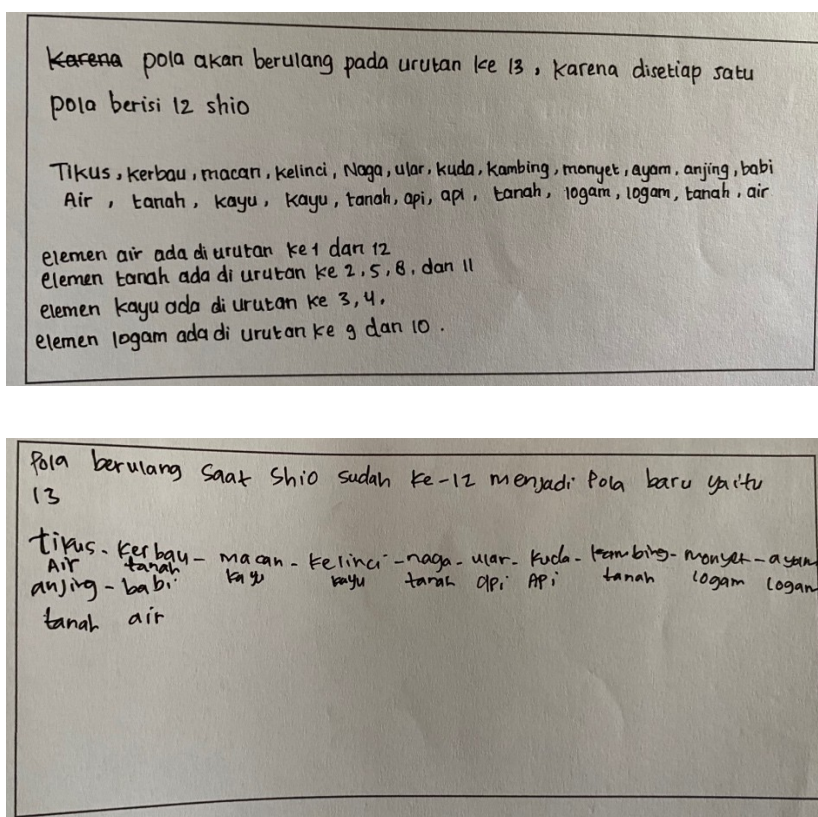 Karena pola akan berulang pada urutan ke 13, karena disetiap satu
pola berisi 12 shio
Tikus, kerbau, macan, kelinci, Naga, ular, kuda, kambing, monyet, ayam, anjing, babi
Air, tanah, kayu, kayu, tanah, api, api, tanah, logam, logam, tanah, air
elemen air ada di urutan ke 1 dan 12
elemen tanah ada di urutan ke 2, 5, 8, dan 11
elemen kayu ada di urutan ke 3, 4.
elemen logam ada di urutan ke 9 dan 10.
Pola berulang saat shio sudah ke-12 menjadi Pola baru yaitu
13
tikus - kerbau - macan - kelinci - naga - ular - kuda - kambing - monyet - ayam
Air tanah kayu kayu tanah api Api tanah logam logam
anjing - babi
tanah air